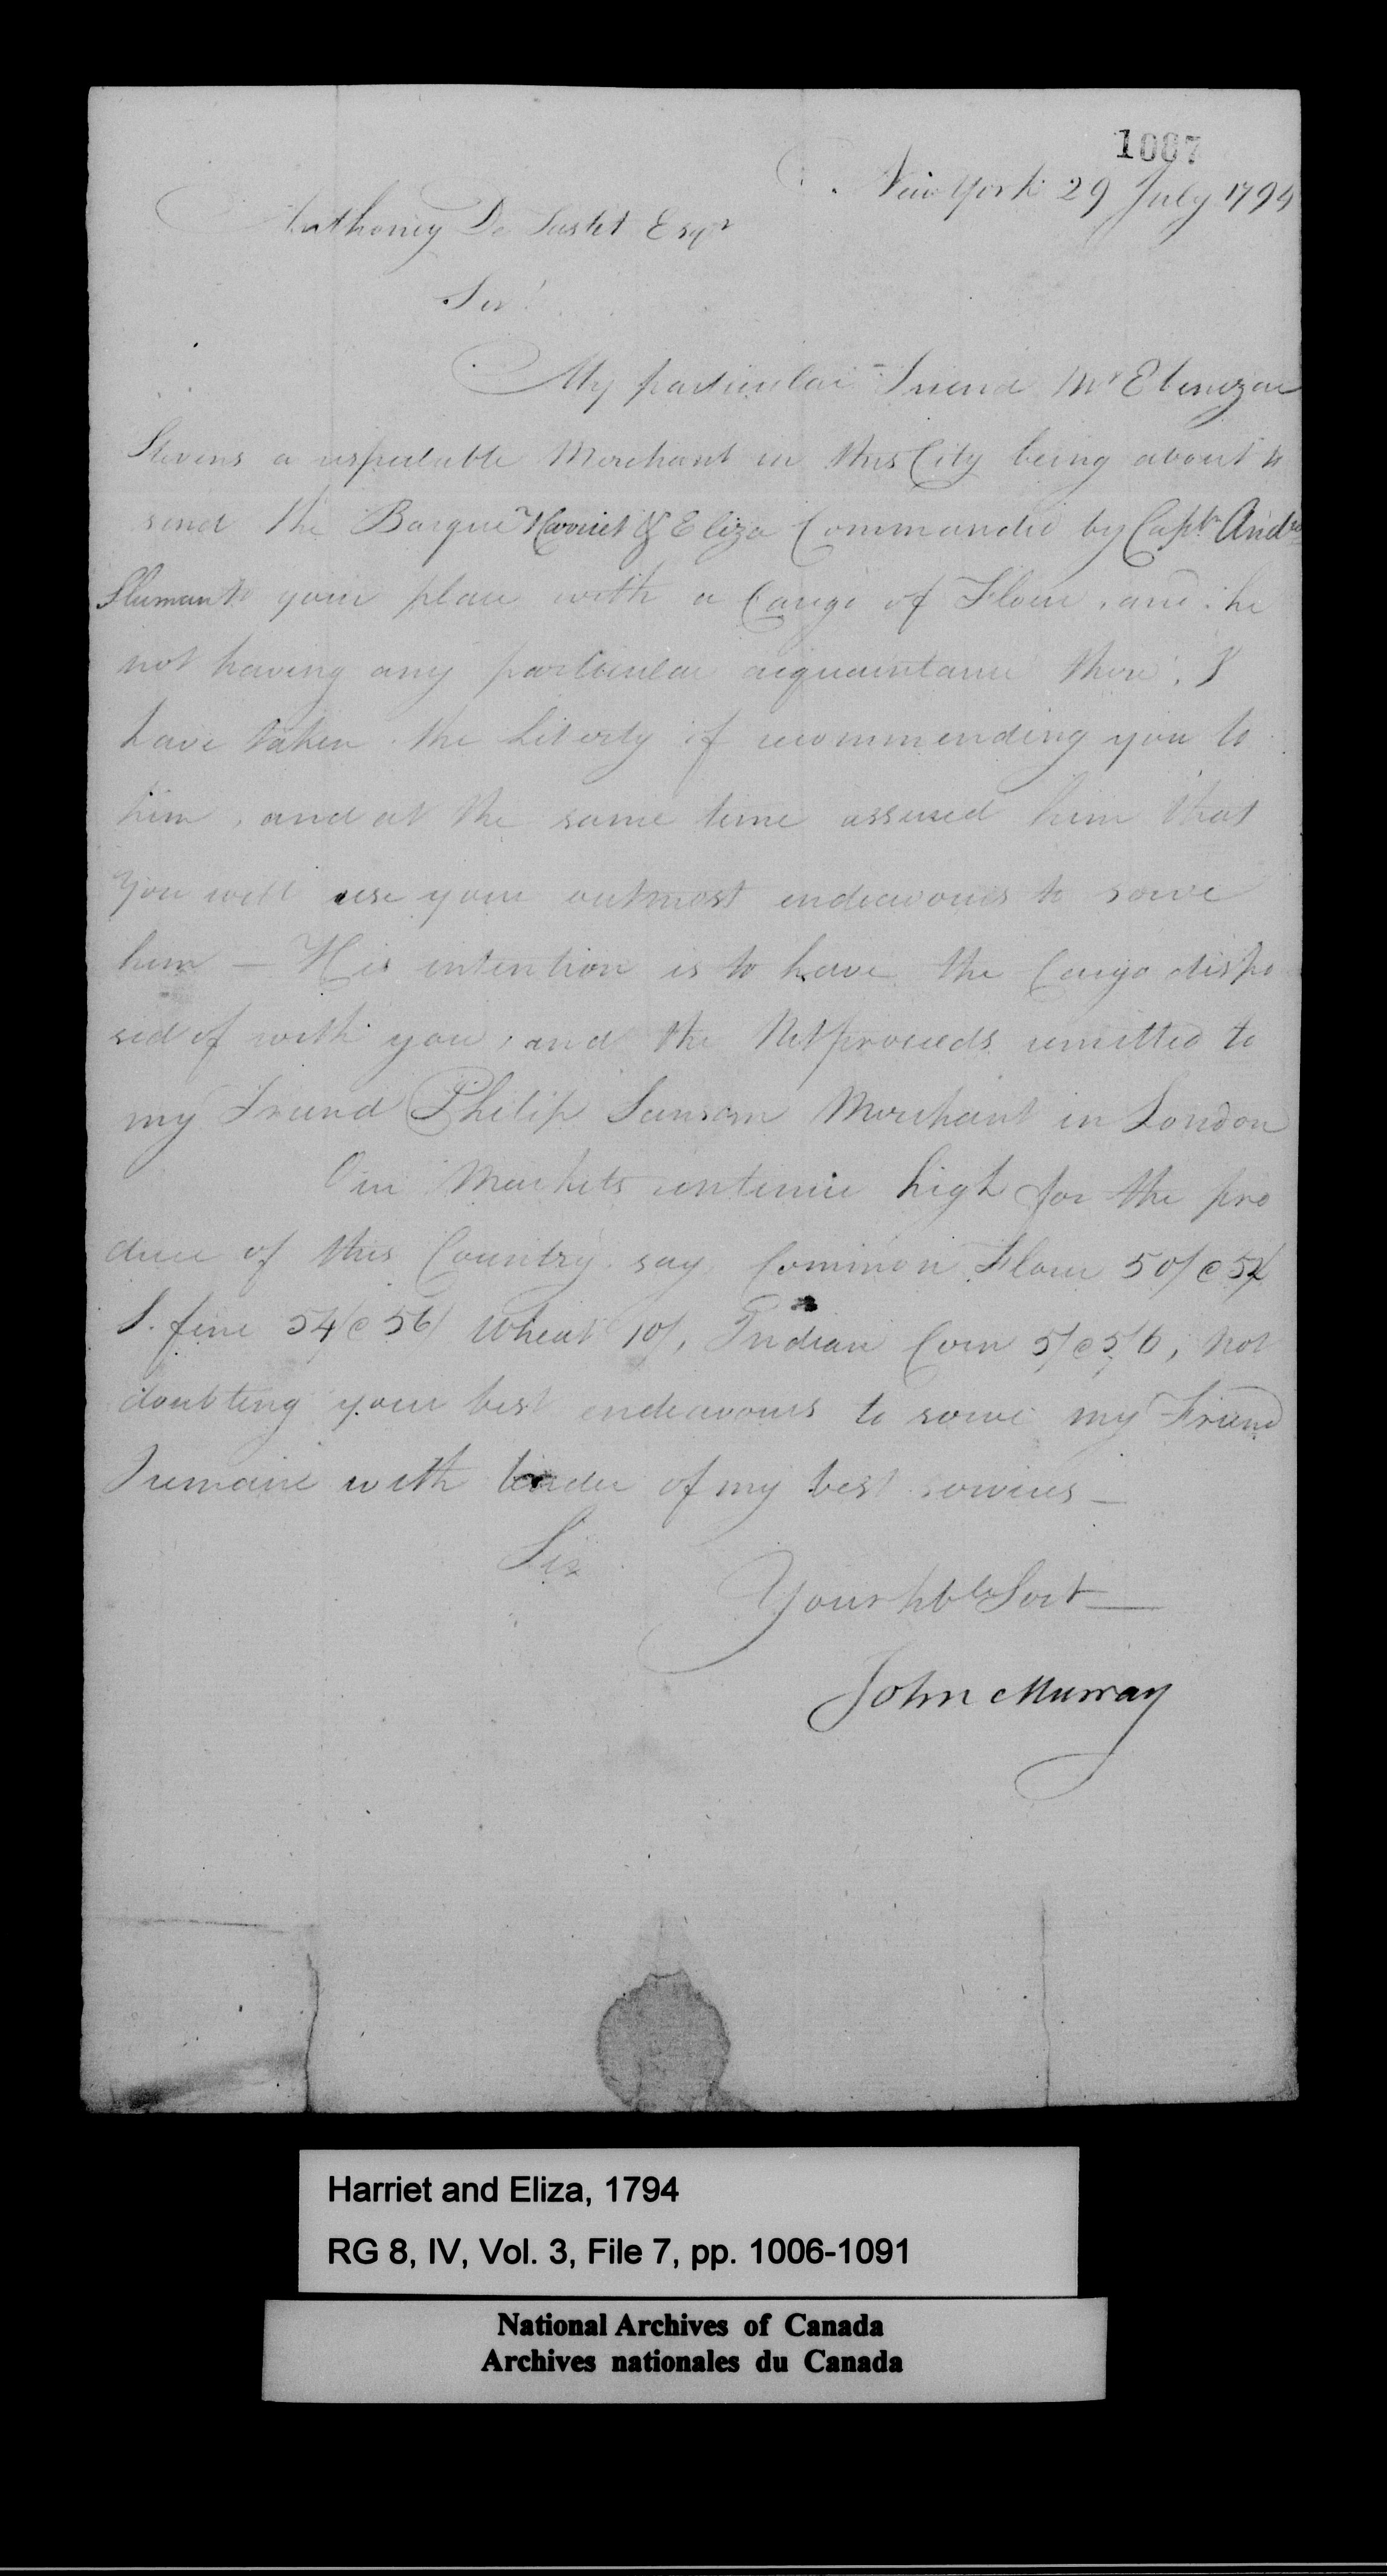 1087
New York 29 July 1794
Anthoney De Sustet Esqr
Sir!
My particular Friend Mr Ebenezar
Stevens a respectable Merchant in this City being about to
send the Barque Harriet & Eliza Commanded by Captn Andw
Sluman to your place with a Cargo of Flour, and he
not having any particular acquaintance there, I
have taken the Liberty of recommending you to
him, and at the same time assured him that
you will use your outmost endeavours to serve
him — His intention is to have the Cargo dispo
sed of with you, and the Netproceeds remitted to
my Friend Philip Sansom Merchant in London
Our Markets continue high for the pro
duce of this Country say Common Flour 50/ @ 52/
S. fine 54/ @ 56/ Wheat 10/, Indian Corn 5/ @ 5/6, not
doubting your best endeavours to serve my Friend
I remain with tender of my best services —
Sir
Your hble Servt
John Murray
Harriet and Eliza, 1794
RG 8, IV, Vol. 3, File 7, pp. 1006-1091
National Archives of Canada
Archives nationales du Canada